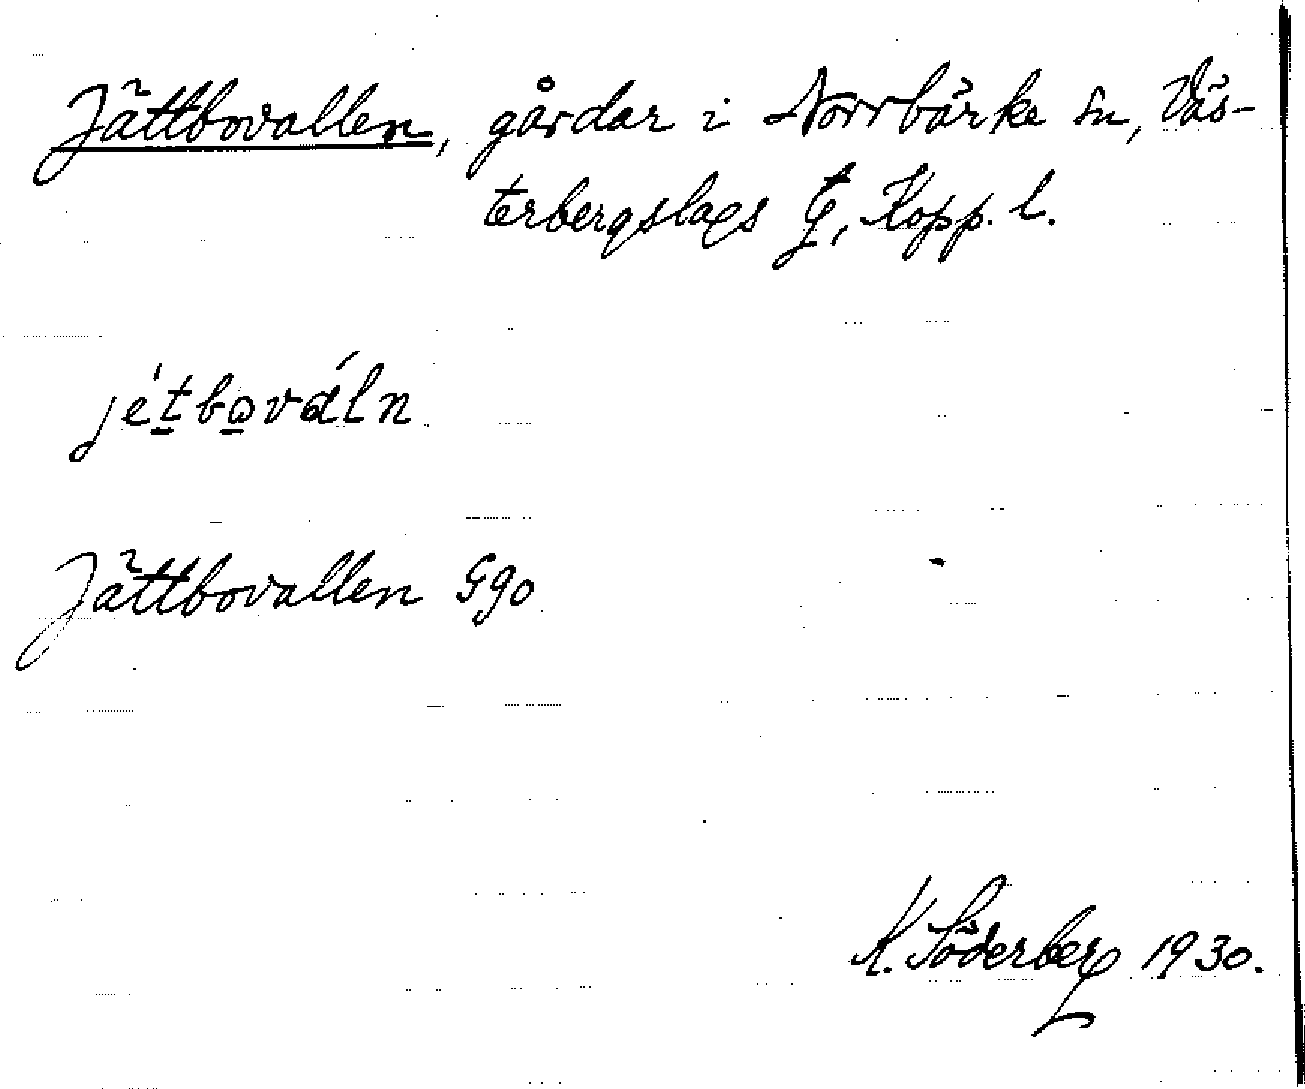 Jättbovallen, gårdar i Norrbärke sn, Väs-
terbergslags tg, Kopp. l.
jét̲bo̲váln
Jättbovallen Ggo
K. Söderberg 1930.